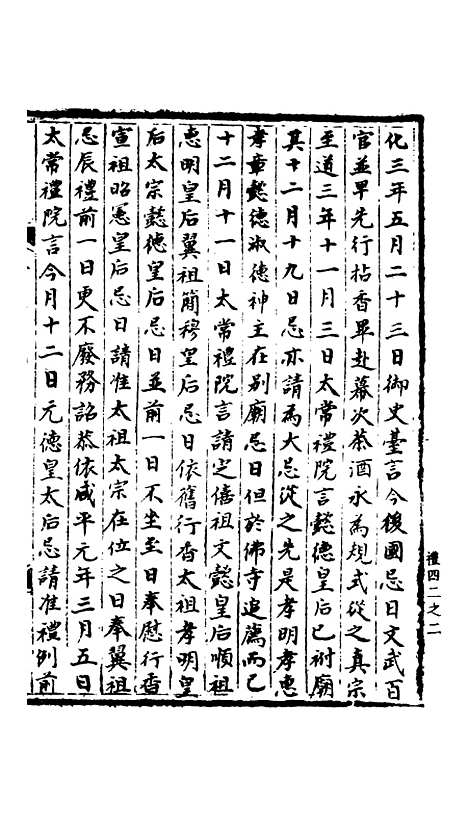 化三年五月二十三日御史臺言今後國忌日文武百
官並早先行拈香畢赴幕次茶酒永為規式從之真宗
至道三年十一月三日太常禮院言懿德皇后已祔廟
其十二月十九日忌亦請為大忌從之先是孝明孝惠
孝章懿德淑德神主在别廟忌日但於佛寺追薦而已
十二月十一日太常禮院言請定僖祖文懿皇后順祖
惠明皇后翼祖簡穆皇后忌日依舊行香太祖孝明皇
后太宗懿德皇后忌日並前一日不坐至日奉慰行香
宣祖昭憲皇后忌日請准太祖太宗在位之日奉翼祖
忌辰禮前一日更不廢務詔恭依咸平元年三月五日
太常禮院言今月十二日元德皇太后忌請准禮例前
禮四二之二